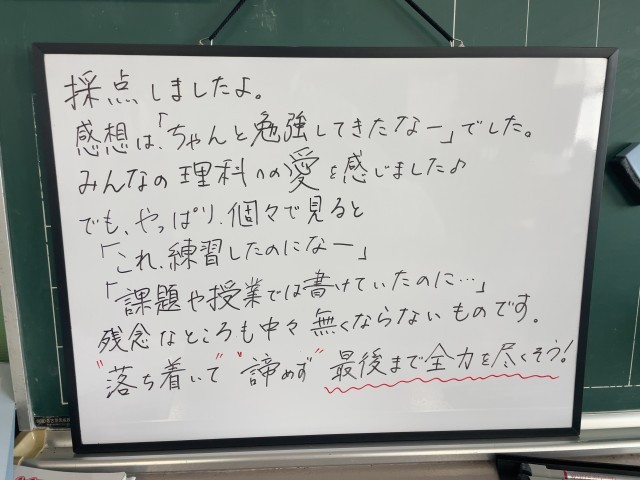 採点しましたよ。
感想は、「ちゃんと勉強してきたなー」でした。
みんなの理科への愛を感じました♪
でも、やっぱり、個々で見ると
「これ、練習したのになー」
「課題や授業では書けていたのに…」
残念なところも中々無くならないものです。
"落ち着いて" "諦めず" 最後まで全力を尽くそう!